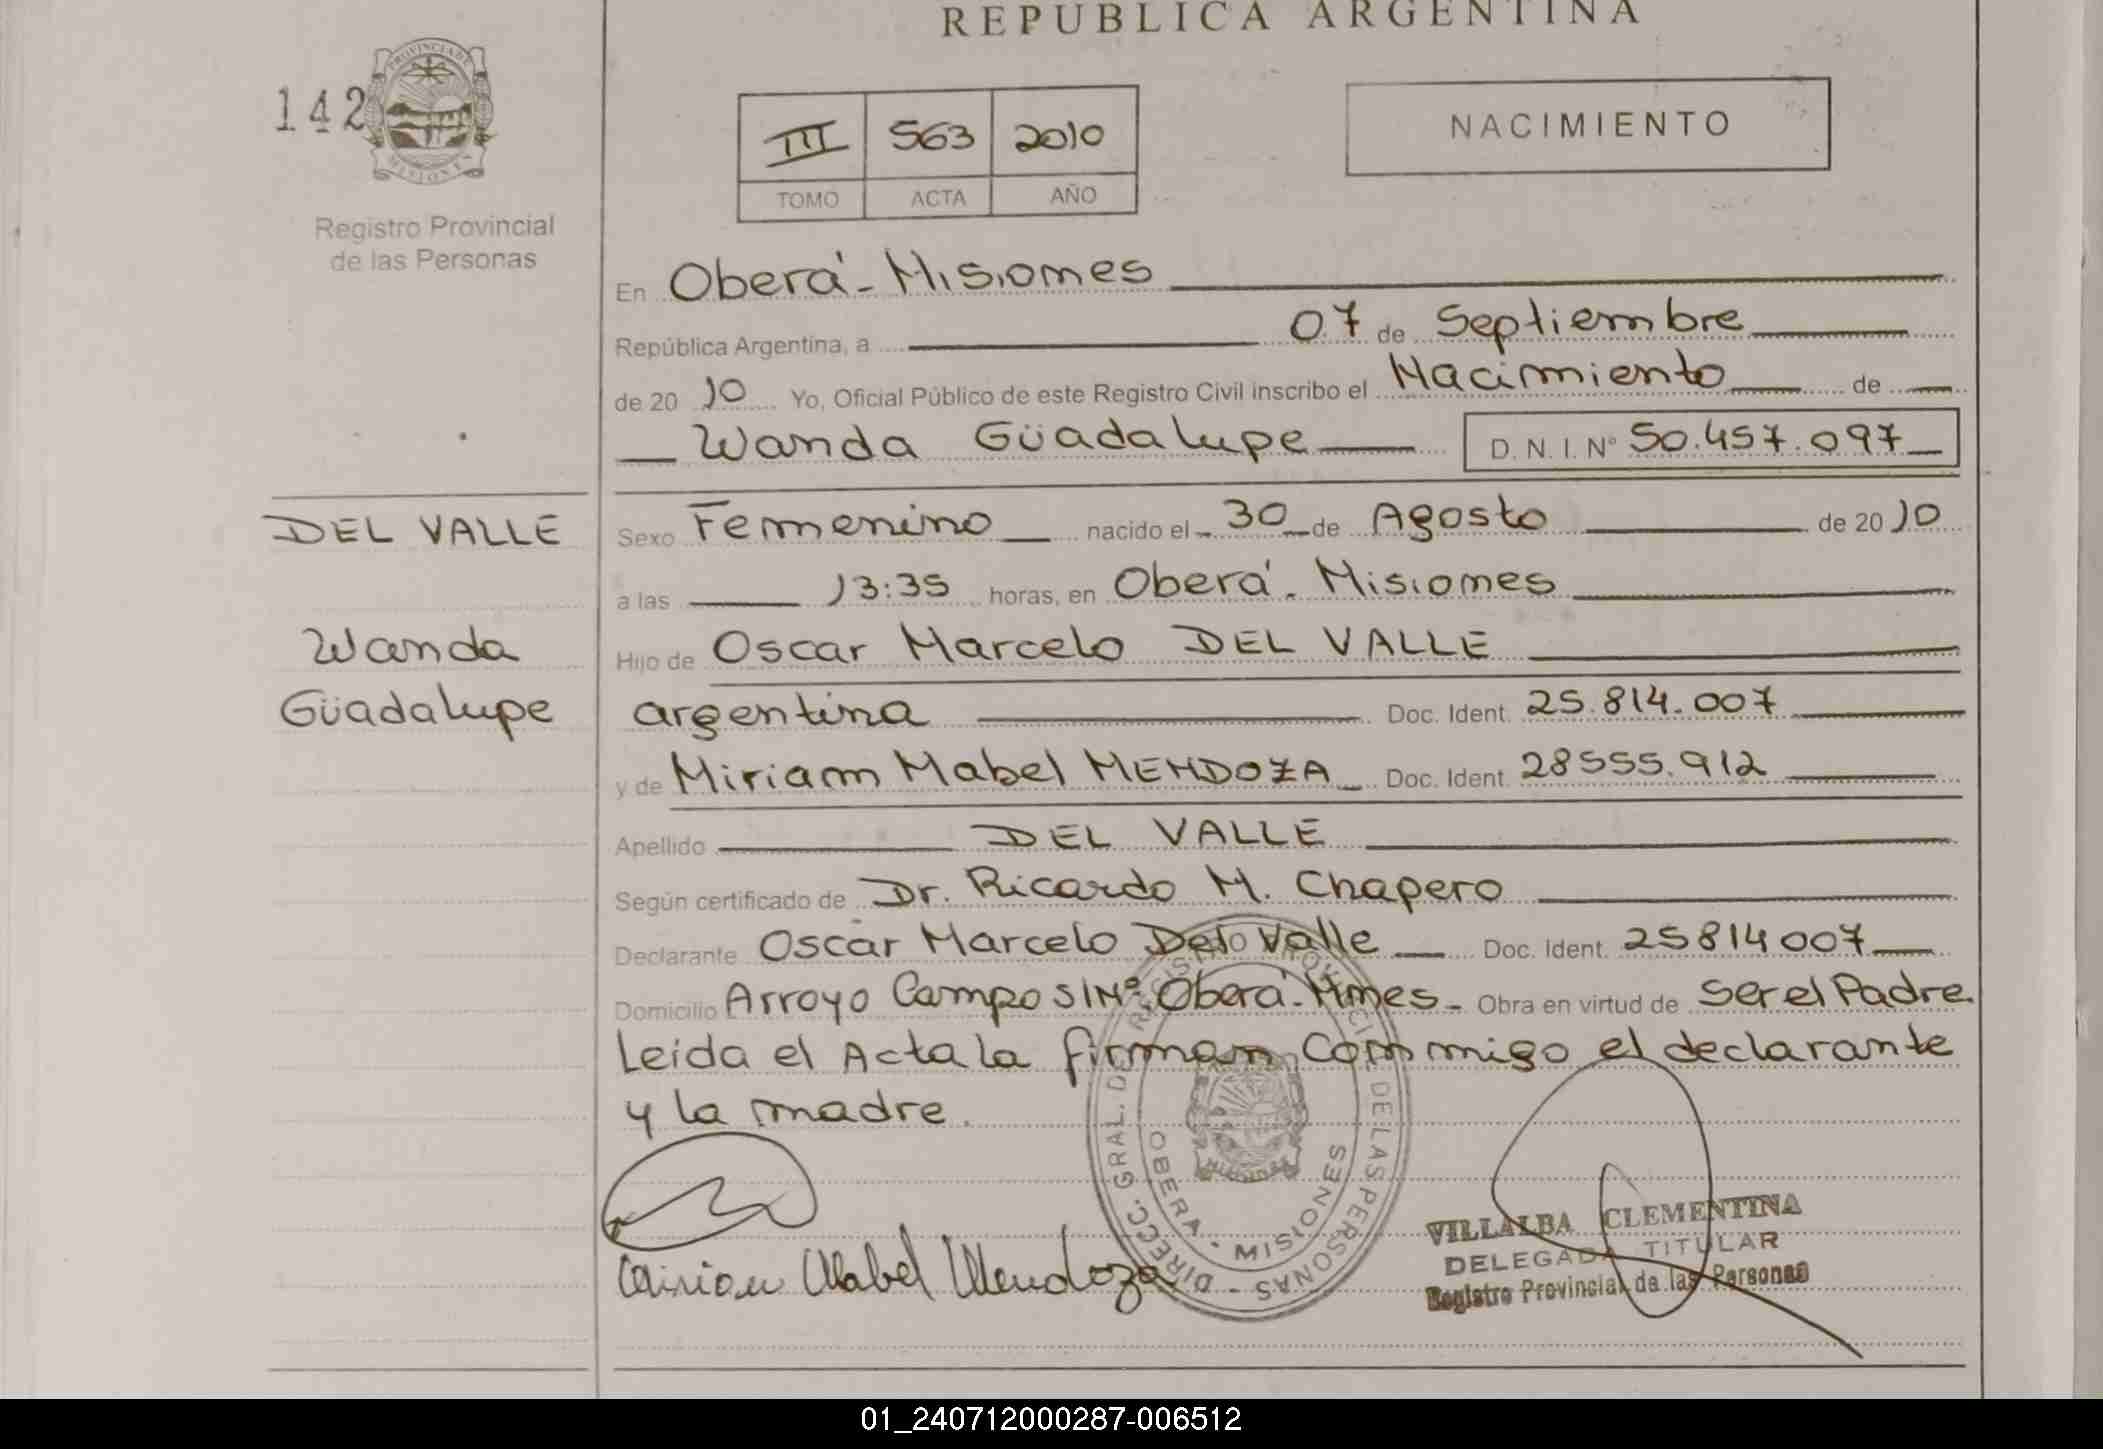 REPUBLICA ARGENTINA
142
PROVINCIA DE
MISIONES
Registro Provincial
de las Personas
III 563 2010
TOMO ACTA AÑO
NACIMIENTO
En Oberá - Misiones
República Argentina, a 07 de Septiembre
de 2010 Yo, Oficial Público de este Registro Civil inscribo el Nacimiento de
Wanda Güadalupe D. N. I. Nº 50.457.097
DEL VALLE
Wanda
Güadalupe
Sexo Femenino nacido el 30 de Agosto de 2010
a las 13:35 horas, en Oberá. Misiones
Hijo de Oscar Marcelo DEL VALLE
argentina Doc. Ident. 25.814.007
y de Miriam Mabel MENDOZA Doc. Ident. 28555.912
Apellido DEL VALLE
Según certificado de Dr. Ricardo M. Chapero
Declarante Oscar Marcelo Del Valle Doc. Ident. 25814007
Domicilio Arroyo Campo S/Nº Oberá - Mnes - Obra en virtud de Ser el Padre.
Leída el Acta la firman conmigo el declarante
y la madre.
DIRECC. GRAL. DE REGISTRO PROVINCIAL DE LAS PERSONAS
OBERA - MISIONES
Miriam Mabel Mendoza
VILLALBA CLEMENTINA
DELEGADA TITULAR
Registro Provincial de las Personas
01_240712000287-006512